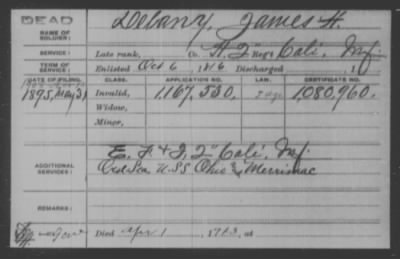 DEAD
NAME OF SOLDIER:
Debany, James H.
SERVICE:
Late rank, Co. H, 2" Reg't Cali. Inf.
TERM OF SERVICE:
Enlisted Oct 6, 1816 Discharged , 1
DATE OF FILING. CLASS. APPLICATION NO. LAW. CERTIFICATE NO.
1895, May 31 Invalid, 1,167,530, 1,080,960.
Widow,
Minor,
ADDITIONAL SERVICES:
E, F & I, 2" Cali. Inf.
Ord Sea. U.S.S. Ohio & Merrimac
REMARKS:
Died Apr 1, 1903, at